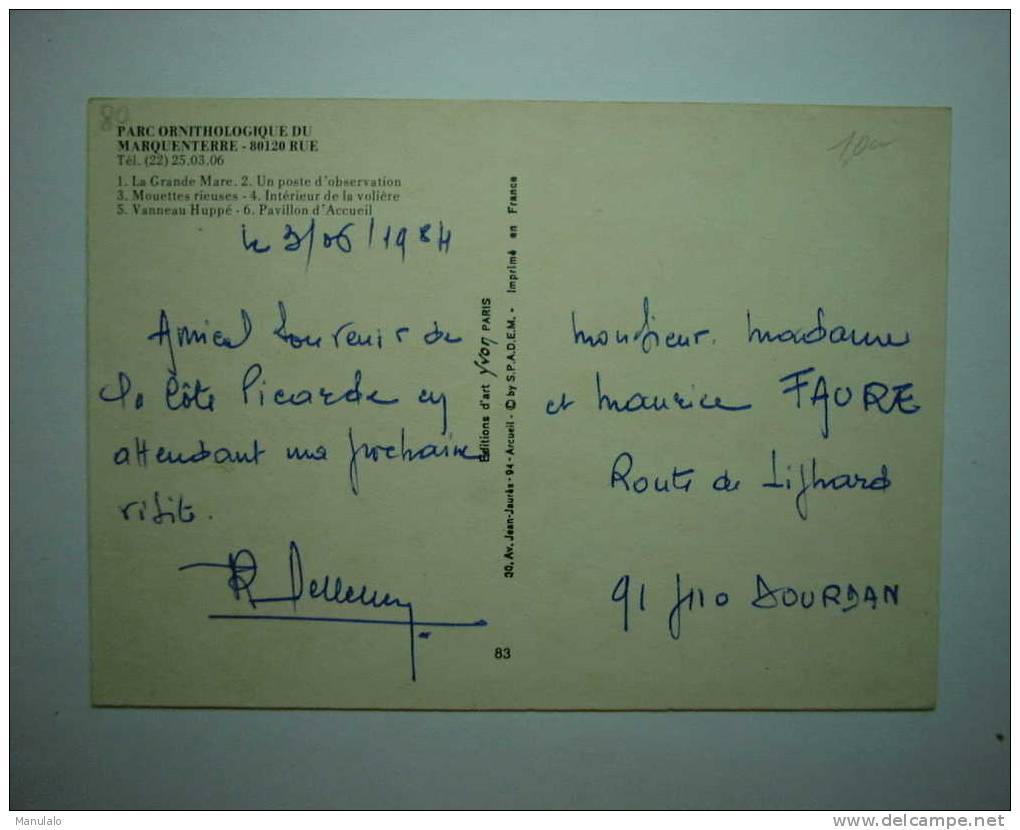 80
PARC ORNITHOLOGIQUE DU
MARQUENTERRE - 80120 RUE
Tél. (22) 25.03.06
1. La Grande Mare. 2. Un poste d'observation
3. Mouettes rieuses - 4. Intérieur de la volière
5. Vanneau Huppé - 6. Pavillon d'Accueil
le 3/06/1984
Amical souvenir de
la Côte Picarde en
attendant ma prochaine
visite.
Editions d'art yvon PARIS
30, Av. Jean-Jaurès - 94 - Arcueil - © by S.P.A.D.E.M. - Imprimé en France
83
Monsieur. Madame
et Maurice FAURE
Route de
91 DOURDAN
Manulalo
http://www.delcampe.net